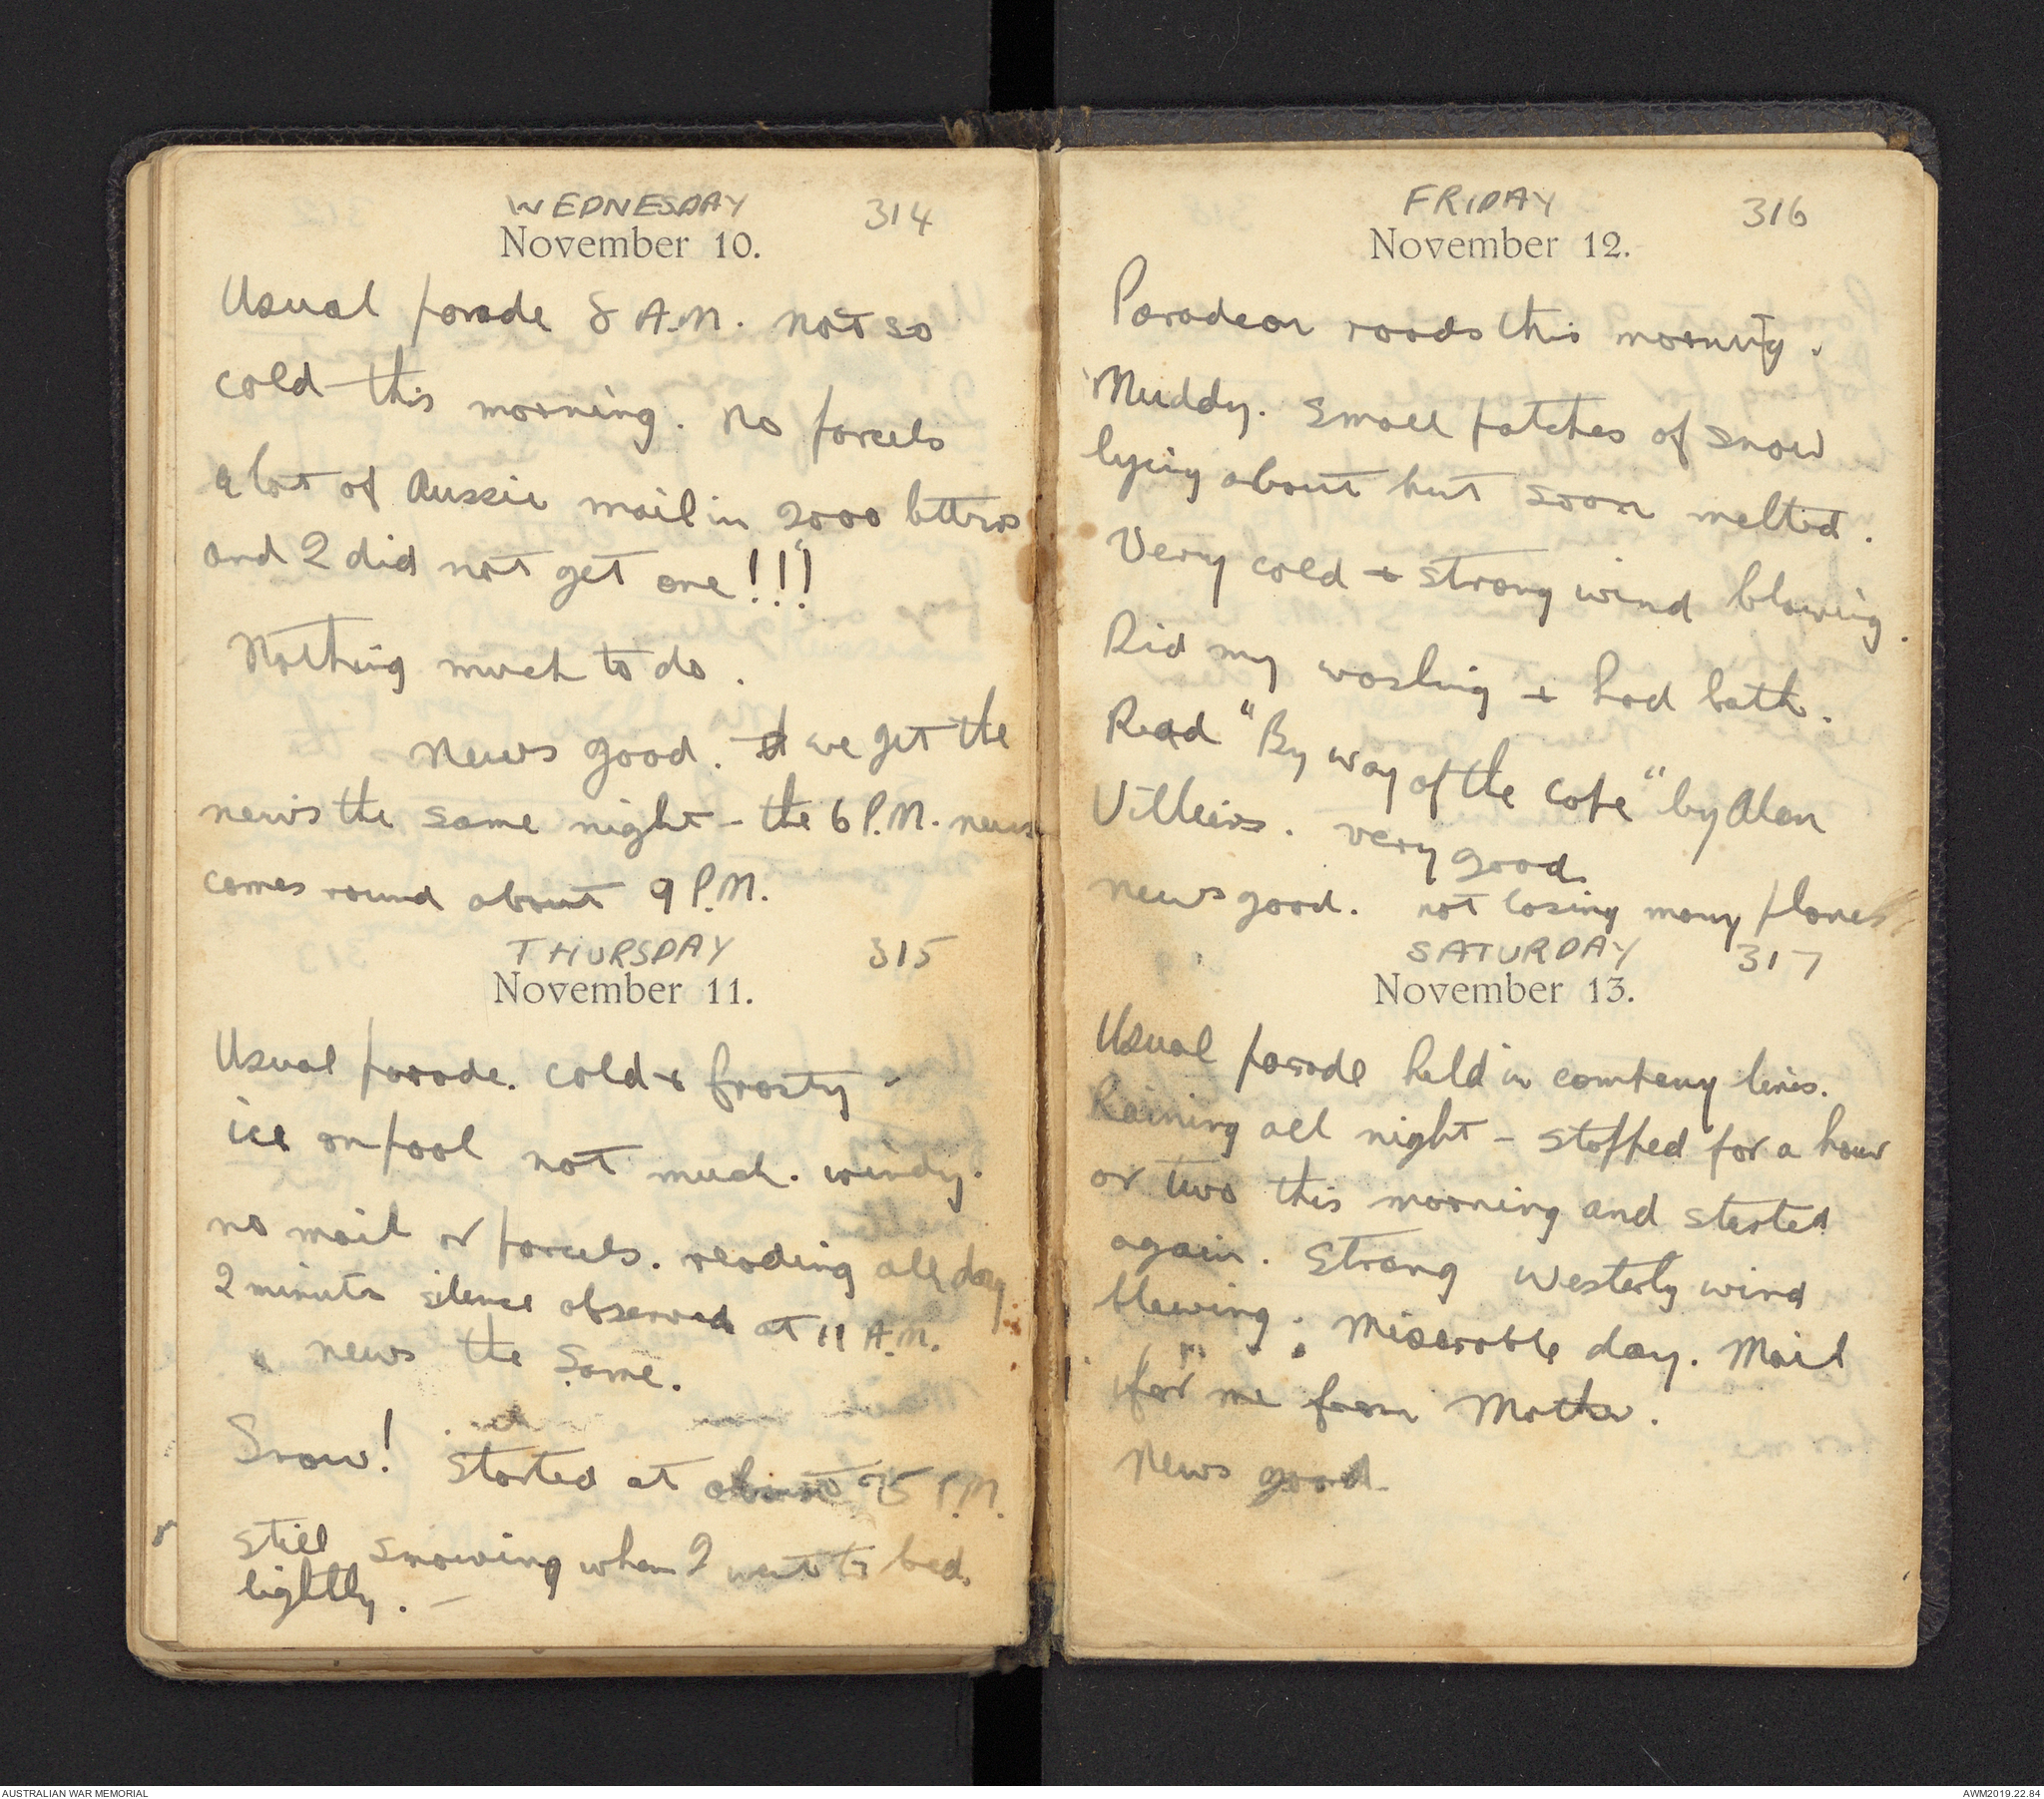 WEDNESDAY 314
November 10.
Usual parade 8 A.M. not so
cold this morning. No parcels
a lot of Aussie mail in 2000 letters
and I did not get one!!!
Nothing much to do.
News good. we get the
news the same night - the 6 P.M. news
comes round about 9 P.M.
THURSDAY 315
November 11.
Usual parade. cold & frosty -
ice on pool not much. windy.
no mail or parcels. reading all day
2 minute silence observed at 11 A.M.
news the same.
Snow! Started at about 75 P.M.
still snowing when I went to bed.
lightly. -
FRIDAY 316
November 12.
Parade on roads this morning.
Muddy. Small patches of snow
lying about but soon melted.
Very cold & strong wind blowing.
Did my washing & had bath.
Read "By way of the Cape" by Alan
Villiers. very good.
news good. not losing many planes
SATURDAY 317
November 13.
Usual parade held in company lines.
Raining all night - stopped for a hour
or two this morning and started
again. Strong Westerly wind
blowing. Miserable day. Mail
for me from Mother.
News good.
AUSTRALIAN WAR MEMORIAL
AWM2019.22.84